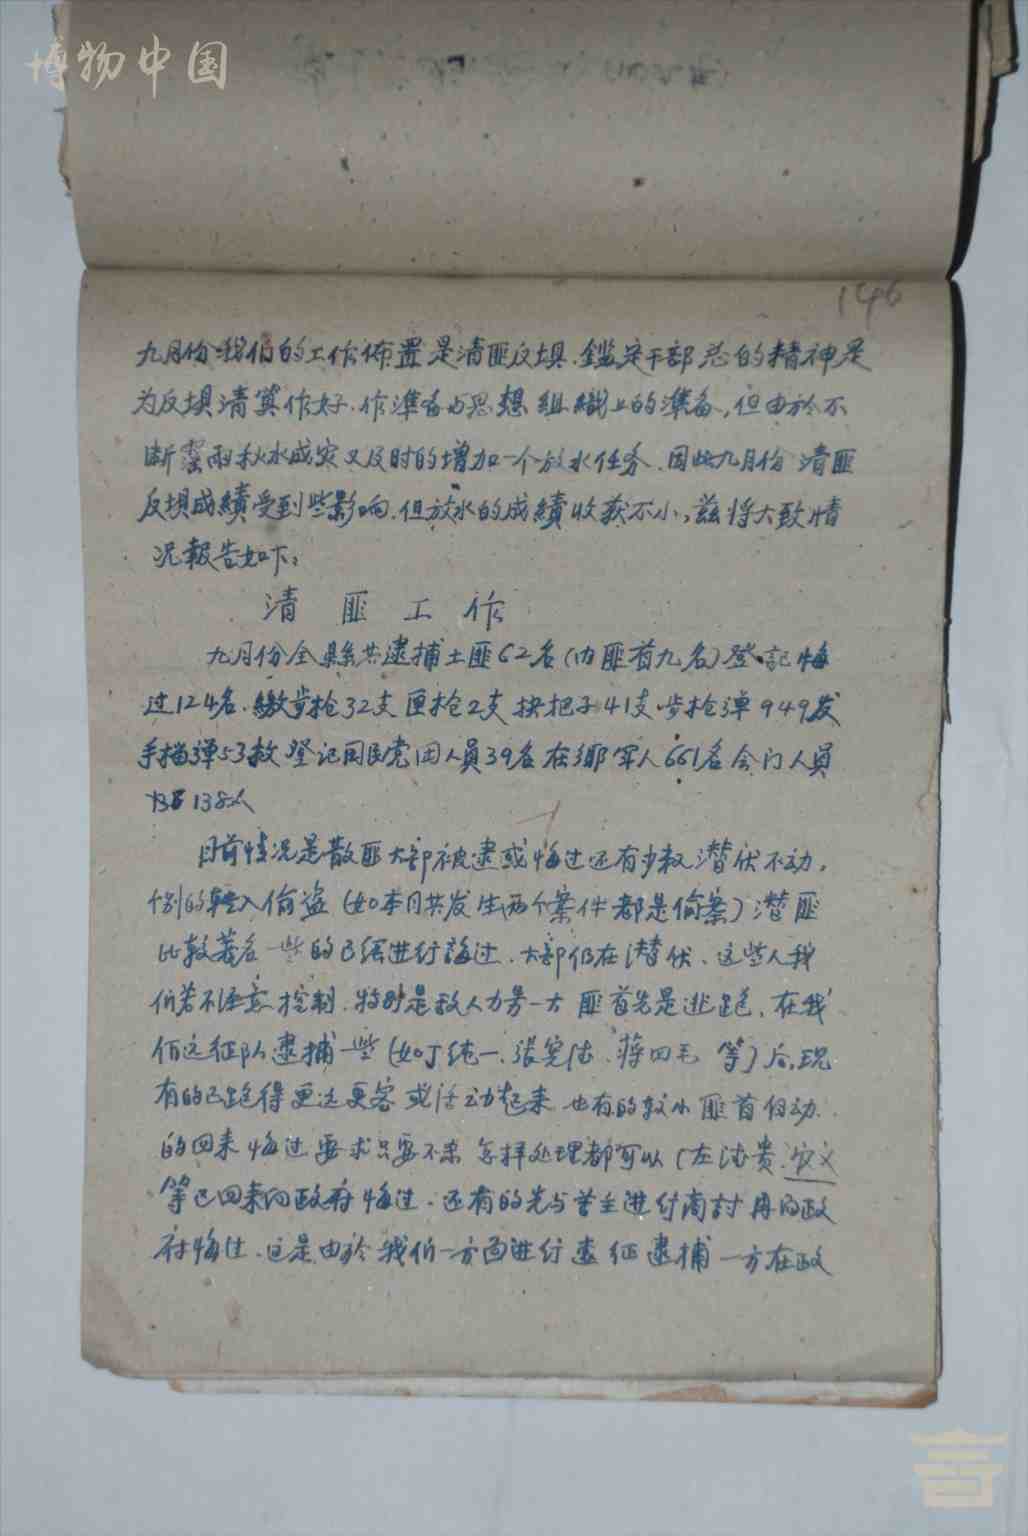 博物中国
146
九月份我们的工作佈置是清匪反坝.鑑定干部总的精神是
为反坝清算作好.作準备与思想组織上的準备,但由於不
断霪雨秋水成灾又及时的增加一个放水任务.因此九月份清匪
反坝成績受到些影响.但放水的成績收获不小,兹将大致情
况報告如下:
清匪工作
九月份全縣共逮捕土匪62名(内匪首九名)登記悔
过124名.繳步枪32支匣枪2支抉把子41支.步枪弹949发
手枪弹53枚登记国民党团人員39名在鄉军人661名会门人員
138人
目前情况是散匪大部被逮或悔过还有少数潜伏不动,
个别的轉入偷盗(如本月共发生两个案件都是偷案)潜匪
比较著名一些的已经进行悔过.大部仍在潜伏.这些人我
们若不注意控制.特别是敌人力量一大匪首先是逃跑.在我
们远征队逮捕一些(如丁纯一.張宪法.蒋四毛等)后,现
有的已跑得更远更容或活动起来也有的较小匪首自动
的回来悔过要求只要不杀怎样处理都可以(左法贵.
等已回来向政府悔过.还有的先与苦主进行商討再向政
府悔过.这是由於我们一方面进行远征逮捕一方在政